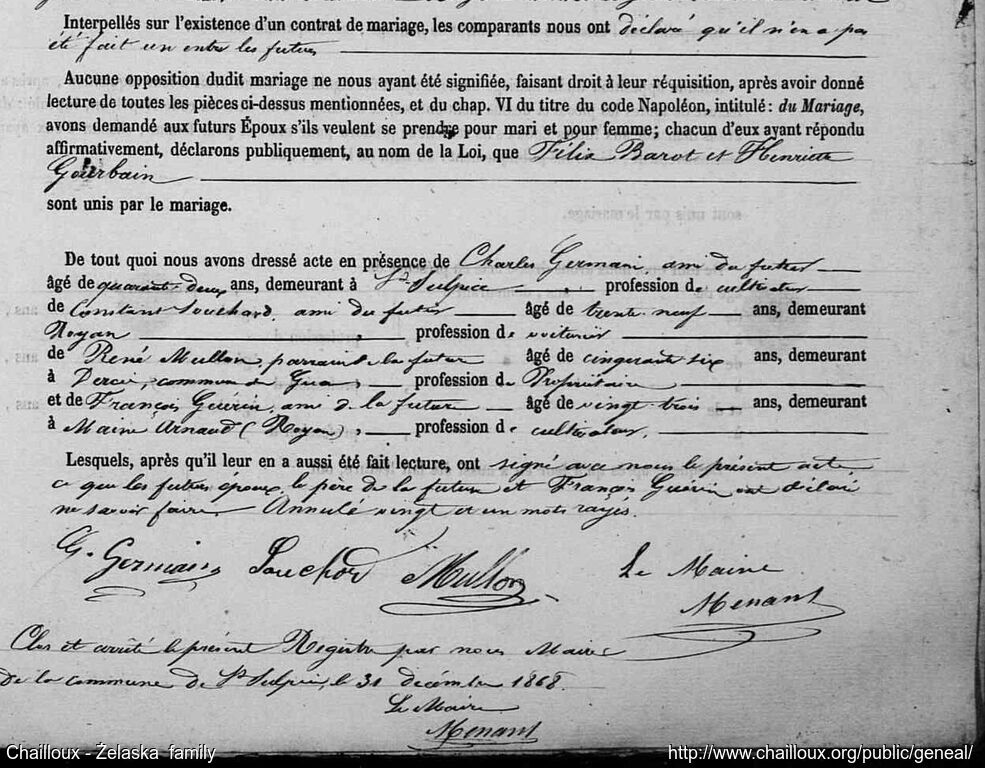 Interpellés sur l'existence d'un contrat de mariage, les comparants nous ont déclaré qu'il n'en a pas
été fait un entre les futurs
Aucune opposition dudit mariage ne nous ayant été signifiée, faisant droit à leur réquisition, après avoir donné
lecture de toutes les pièces ci-dessus mentionnées, et du chap. VI du titre du code Napoléon, intitulé : du Mariage,
avons demandé aux futurs Époux s'ils veulent se prendre pour mari et pour femme; chacun d'eux ayant répondu
affirmativement, déclarons publiquement, au nom de la Loi, que Félix Barot et Henriette
Gourbain
sont unis par le mariage.
De tout quoi nous avons dressé acte en présence de Charles Germain, ami du futur
âgé de quarante-deux ans, demeurant à St Sulpice, profession de cultivateur
de Constant Souchard, ami du futur âgé de trente neuf ans, demeurant
Royan, profession de voiturier
de René Mullon, parrain de la future âgé de cinquante six ans, demeurant
à Dercie, commune du Gua, profession de Propriétaire
et de François Guérin, ami de la future âgé de vingt-trois ans, demeurant
à Maine Arnaud (Royan), profession de cultivateur.
Lesquels, après qu'il leur en a aussi été fait lecture, ont signé avec nous le présent acte,
ce que les futurs époux, le père de la future et François Guérin ont déclaré
ne savoir faire. Annulé vingt et un mots rayés.
G. Germain Souchard Mullon Le Maire
Menant
Clos et arrêté le présent Registre par nous Maire
De la commune de St Sulpice, le 31 décembre 1868.
Le Maire
Menant
Chailloux - Żelaska family http://www.chailloux.org/public/geneal/